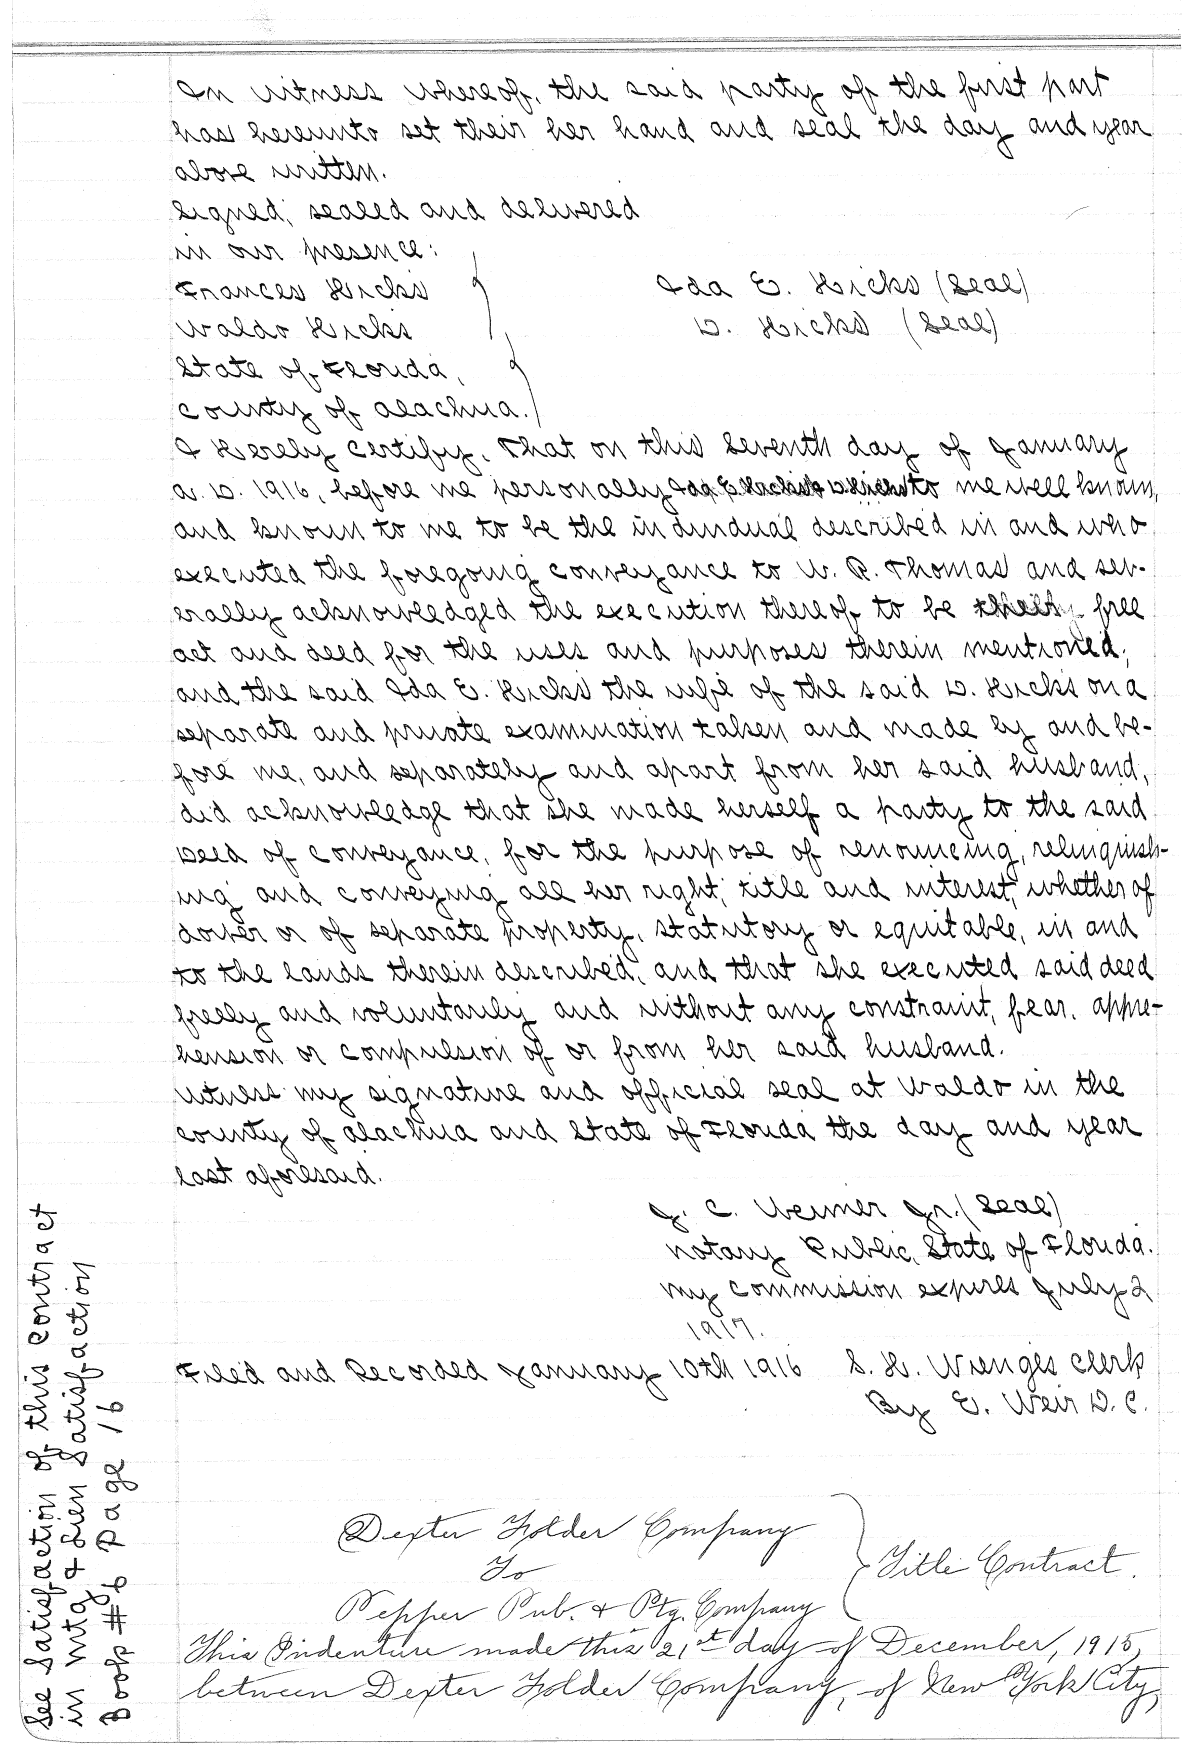 In witness whereof, the said party of the first part
has hereunto set their her hand and seal the day and year
above written.
Signed, sealed and delivered
in our presence:
Frances Hicks
Ida E. Hicks (Seal)
Waldo Hicks
D. Hicks (Seal)
State of Florida,
County of Alachua.
I Hereby Certify, That on this Seventh day of January
A. D. 1916, before me personally Ida E Hicks & D Hicks to me well known,
and known to me to be the individual described in and who
executed the foregoing conveyance to W. R. Thomas and sev-
erally acknowledged the execution thereof to be their free
act and deed for the uses and purposes therein mentioned;
and the said Ida E. Hicks the wife of the said D. Hicks on a
separate and private examination taken and made by and be-
fore me, and separately and apart from her said husband,
did acknowledge that she made herself a party to the said
Deed of conveyance, for the purpose of renouncing, relinquish-
ing and conveying all her right, title and interest, whether of
dower or of separate property, statutory or equitable, in and
to the lands therein described, and that she executed said deed
freely and voluntarily and without any constraint, fear, appre-
hension or compulsion of or from her said husband.
Witness my signature and official seal at Waldo in the
County of Alachua and State of Florida the day and year
last aforesaid.
J. C. Weimer Jr. (Seal)
Notary Public, State of Florida.
My Commission expires July 2
1917.
Filed and Recorded January 10th 1916 S. H. Wienges Clerk
By E. Weir D. C.
See Satisfaction of this Contract
in Mtg & Lien Satisfaction
Book #6 Page 16
Dexter Folder Company
To
Title Contract.
Pepper Pub. & Ptg. Company
This Indenture made this 21st day of December, 1915,
between Dexter Folder Company, of New York City,